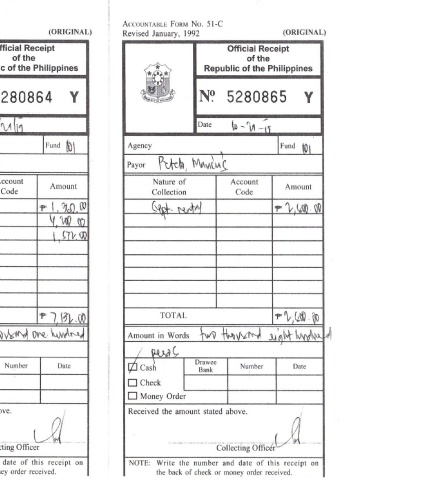 (ORIGINAL)
fficial Receipt
of the
c of the Philippines
280864 Y
Fund 101
ccount
Code
Amount
₱ 1,360.00
4,200.00
1,572.00
₱ 7,132.00
ousand one hundred
Number Date
ove.
ting Officer
date of this receipt on
ey order received.
ACCOUNTABLE FORM NO. 51-C
Revised January, 1992
(ORIGINAL)
Official Receipt
of the
Republic of the Philippines
Nº 5280865 Y
Date
Agency Fund 101
Payor
Nature of
Collection
Account
Code
Amount
Sept. rental
TOTAL
Amount in Words two thousand eight hundred
pesos
Cash
Drawee
Bank
Number
Date
Check
Money Order
Received the amount stated above.
Collecting Officer
NOTE: Write the number and date of this receipt on
the back of check or money order received.